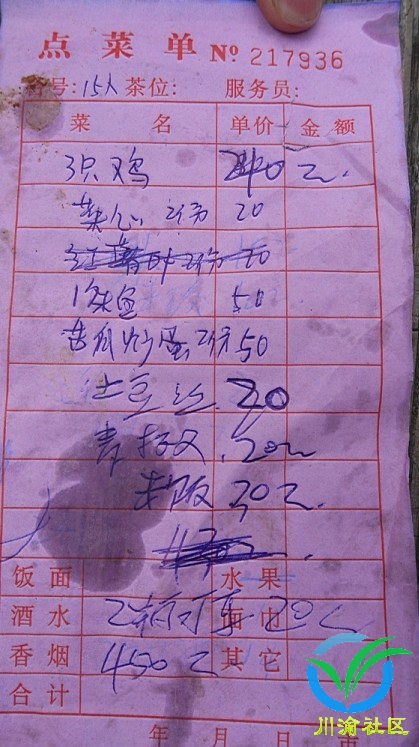 点菜单 Nº 217936
台号: 15人 茶位: 服务员:
菜名 单价 金额
3只鸡 240元.
菜心 2份 20
50
苦瓜炒蛋 2份 50
土豆丝. 20
青 20元
米饭 20元.
饭面 水果
酒水 2 20元 面巾
香烟 450元 其它
合计
年 月 日
川渝社区